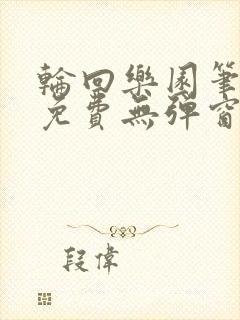 輪回樂園筆
免費無彈窗
段偉